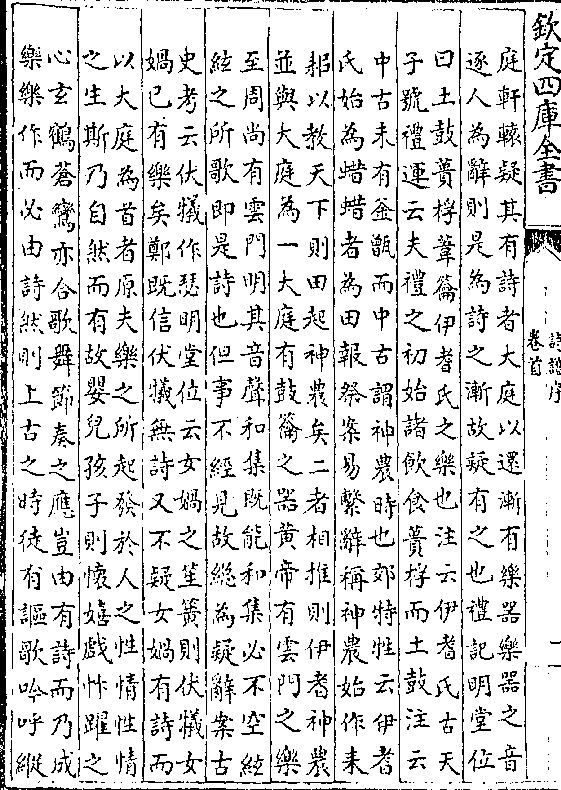 欽定四庫全書
詩譜序
卷首
二
庭軒轅疑其有詩者大庭以還漸有樂器樂器之音
逐人為辭則是為詩之漸故疑有之也禮記明堂位
曰土鼓蕢桴葦籥伊耆氏之樂也注云伊耆氏古天
子號禮運云夫禮之初始諸飲食蕢桴而土鼓注云
中古未有釜甑而中古謂神農時也郊特牲云伊耆
氏始為蜡蜡者為田報祭案易繫辭稱神農始作耒
耜以教天下則田起神農矣二者相推則伊耆神農
並與大庭為一大庭有鼓籥之器黄帝有雲門之樂
至周尚有雲門明其音聲和集既能和集必不空絃
絃之所歌即是詩也但事不經見故總為疑辭案古
史考云伏犧作瑟明堂位云女媧之笙簧則伏犧女
媧已有樂矣鄭既信伏犧無詩又不疑女媧有詩而
以大庭為首者原夫樂之所起發於人之性情性情
之生斯乃自然而有故嬰兒孩子則懷嬉戲忭躍之
心玄鶴蒼鸞亦合歌舞節奏之應豈由有詩而乃成
樂樂作而必由詩然則上古之時徒有謳歌吟呼縱